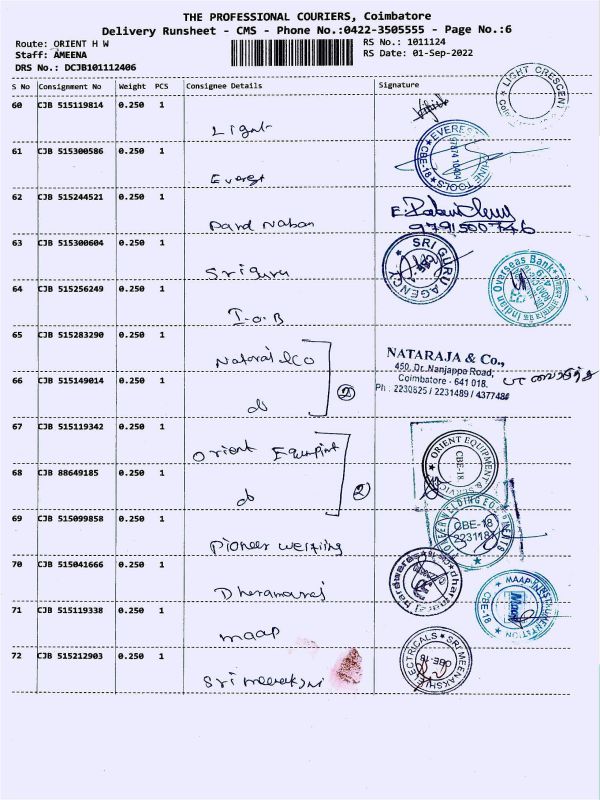 THE PROFESSIONAL COURIERS, Coimbatore
Delivery Runsheet - CMS - Phone No.:0422-3505555 - Page No.:6
Route: ORIENT H W
RS No.: 1011124
Staff: AMEENA
RS Date: 01-Sep-2022
DRS No.: DCJB101112406
S No Consignment No Weight PCS Consignee Details Signature
60 CJB 515119814 0.250 1
Light
LIGHT CRESCENT
61 CJB 515300586 0.250 1
Everest
EVEREST
CBE-18
62 CJB 515244521 0.250 1
9791500746
63 CJB 515300604 0.250 1
Sri guru
SRI GURU AGENCY
64 CJB 515256249 0.250 1
I.O.B
Indian Overseas Bank
65 CJB 515283290 0.250 1
NATARAJA & Co.,
450, Dr. Nanjappa Road,
Coimbatore - 641 018.
Ph : 2230625 / 2231489 / 4377486
66 CJB 515149014 0.250 1
do
2
67 CJB 515119342 0.250 1
Orient
ORIENT EQUIPMENT & SERVICE
CBE-18.
68 CJB 88649185 0.250 1
do
2
69 CJB 515099858 0.250 1
Pioneer
CBE-18
70 CJB 515041666 0.250 1
Dharamaraj
dharmaraj hardwares
71 CJB 515119338 0.250 1
maap
MAAP INSTRUMENTATION
CBE-18
72 CJB 515212903 0.250 1
SRI MEENAKSHI ELECTRICALS
CBE-18